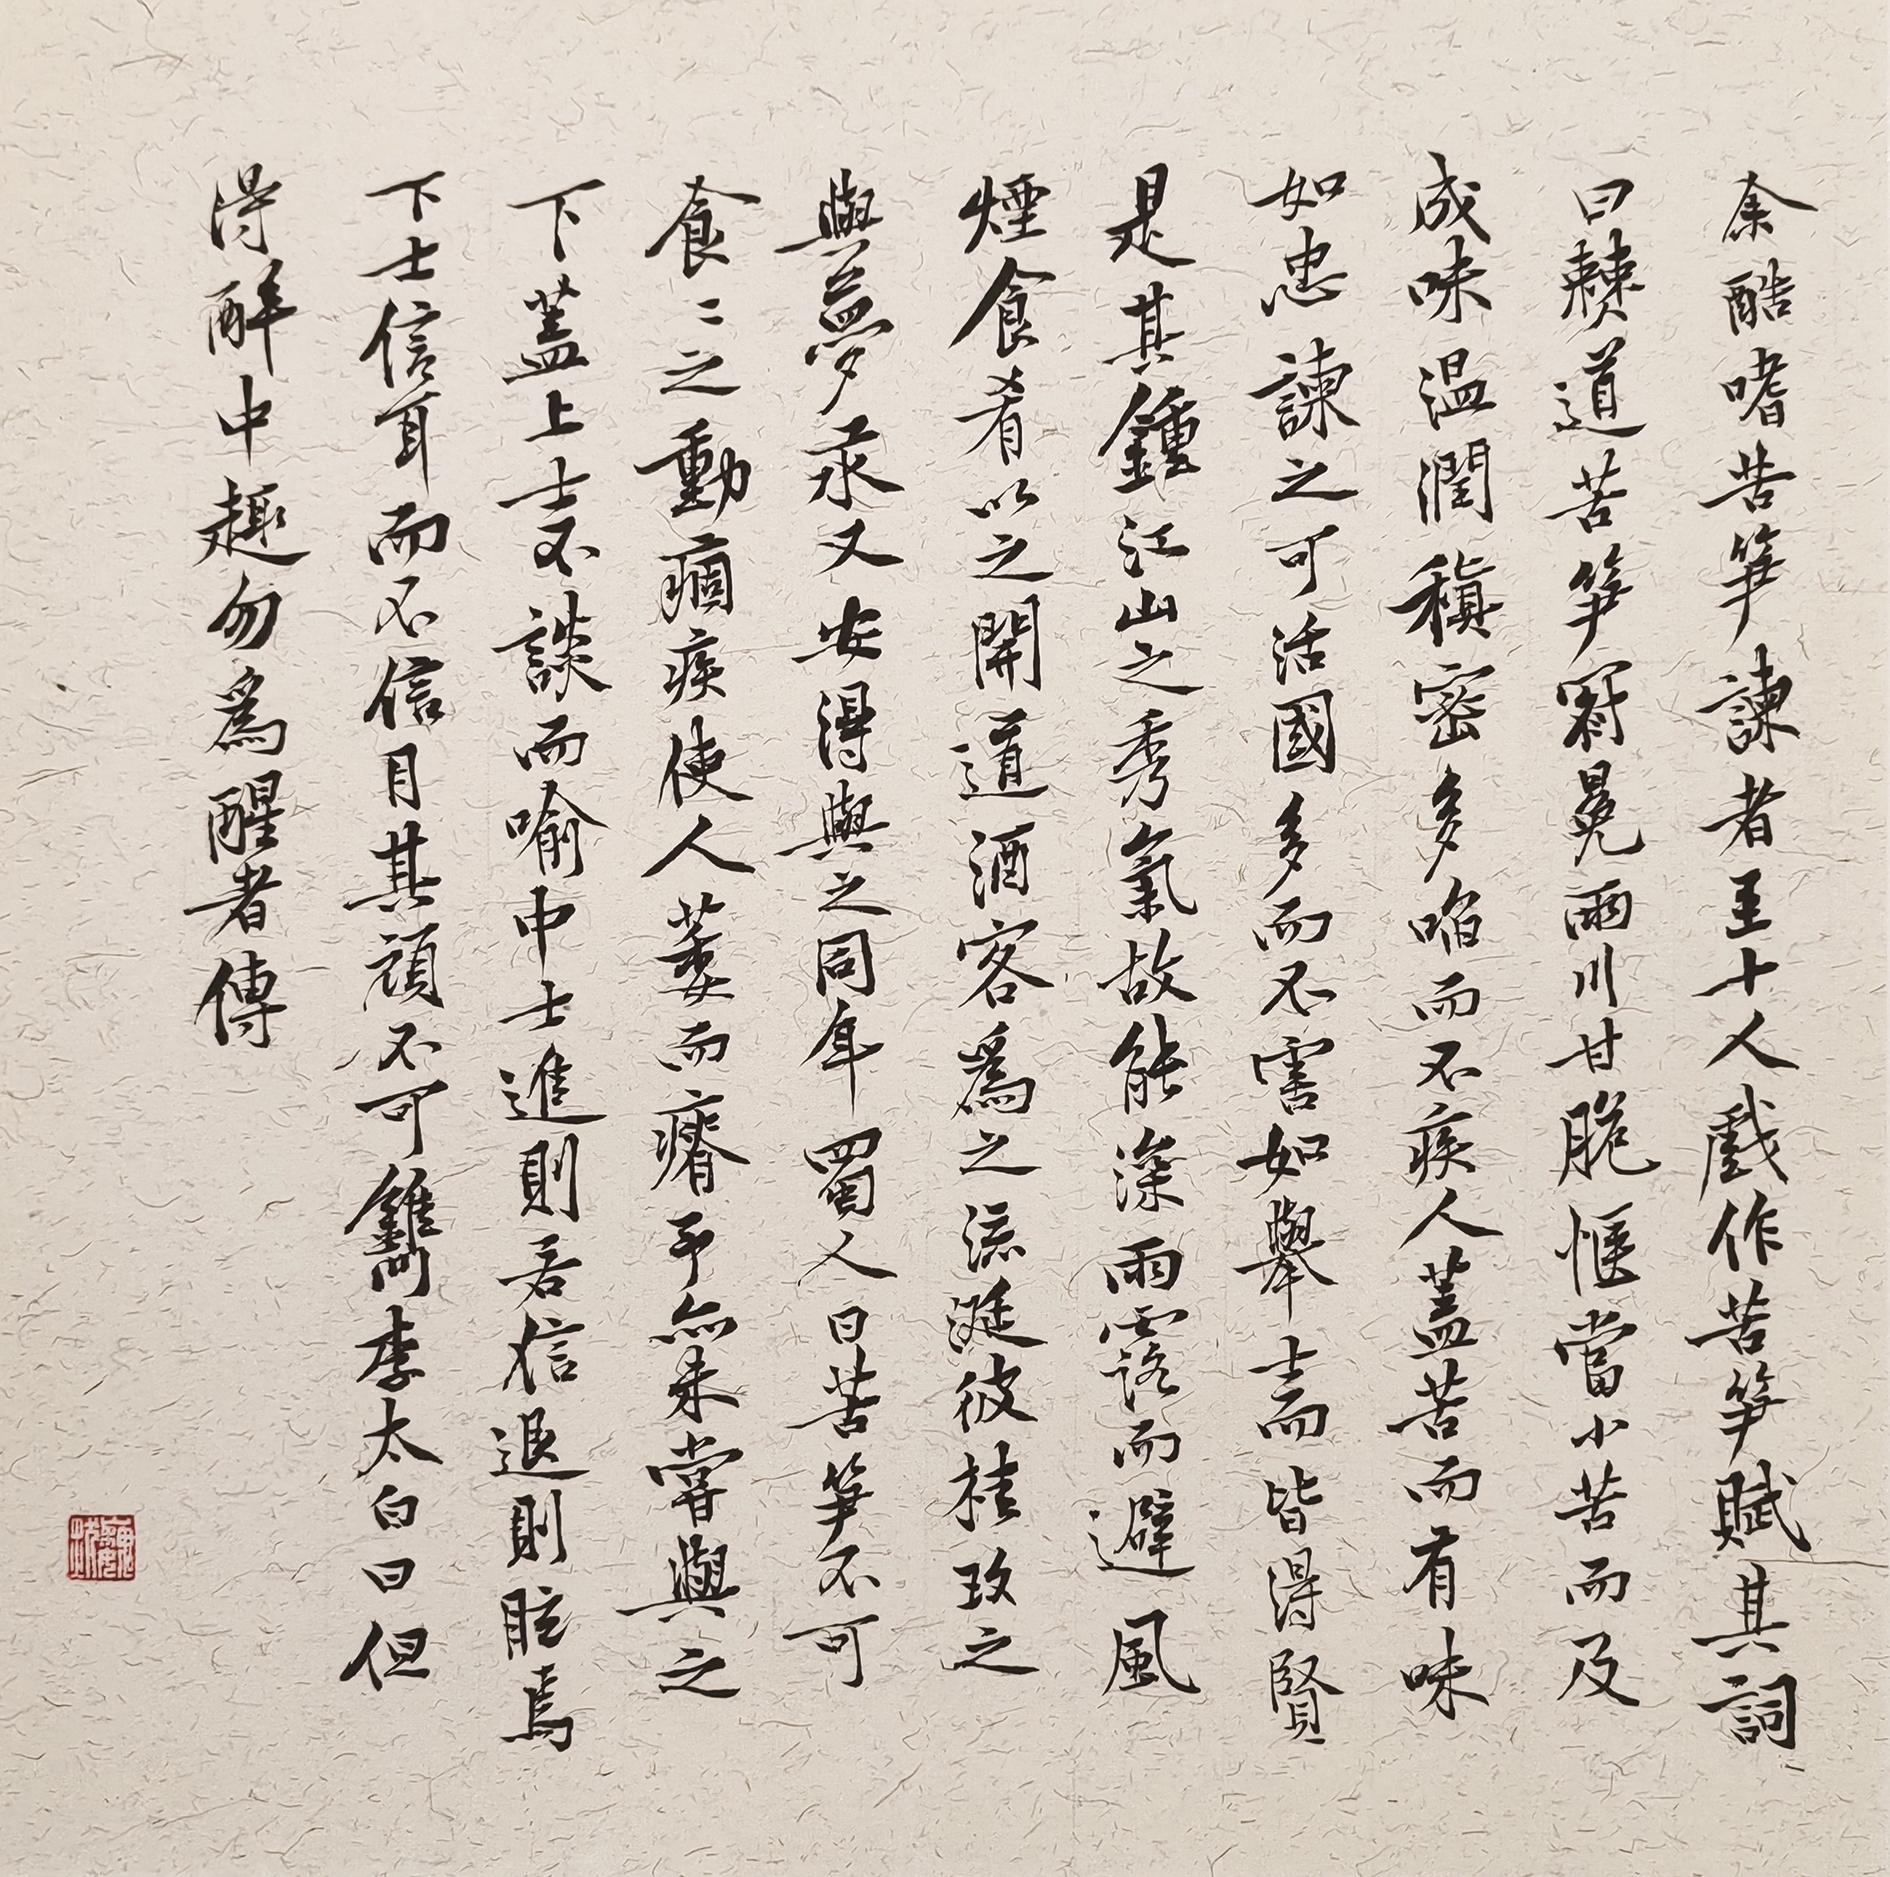 余酷嗜苦笋諫者至十人戲作苦笋賦其詞
曰僰道苦笋冠冕兩川甘脆愜當小苦而及
成味温潤稹密多啗而不疾人蓋苦而有味
如忠諫之可活國多而不害如舉士而皆得賢
是其鍾江山之秀氣故能深雨露而避風
煙食肴以之開道酒客爲之流涎彼桂玫之
與夢汞又安得與之同年蜀人曰苦笋不可
食二之動痼疾使人萎而瘠予亦未嘗與之
下蓋上士不談而喻中士進則若信退則眩焉
下士信耳而不信目其頑不可鐫李太白曰但
得醉中趣勿爲醒者傳